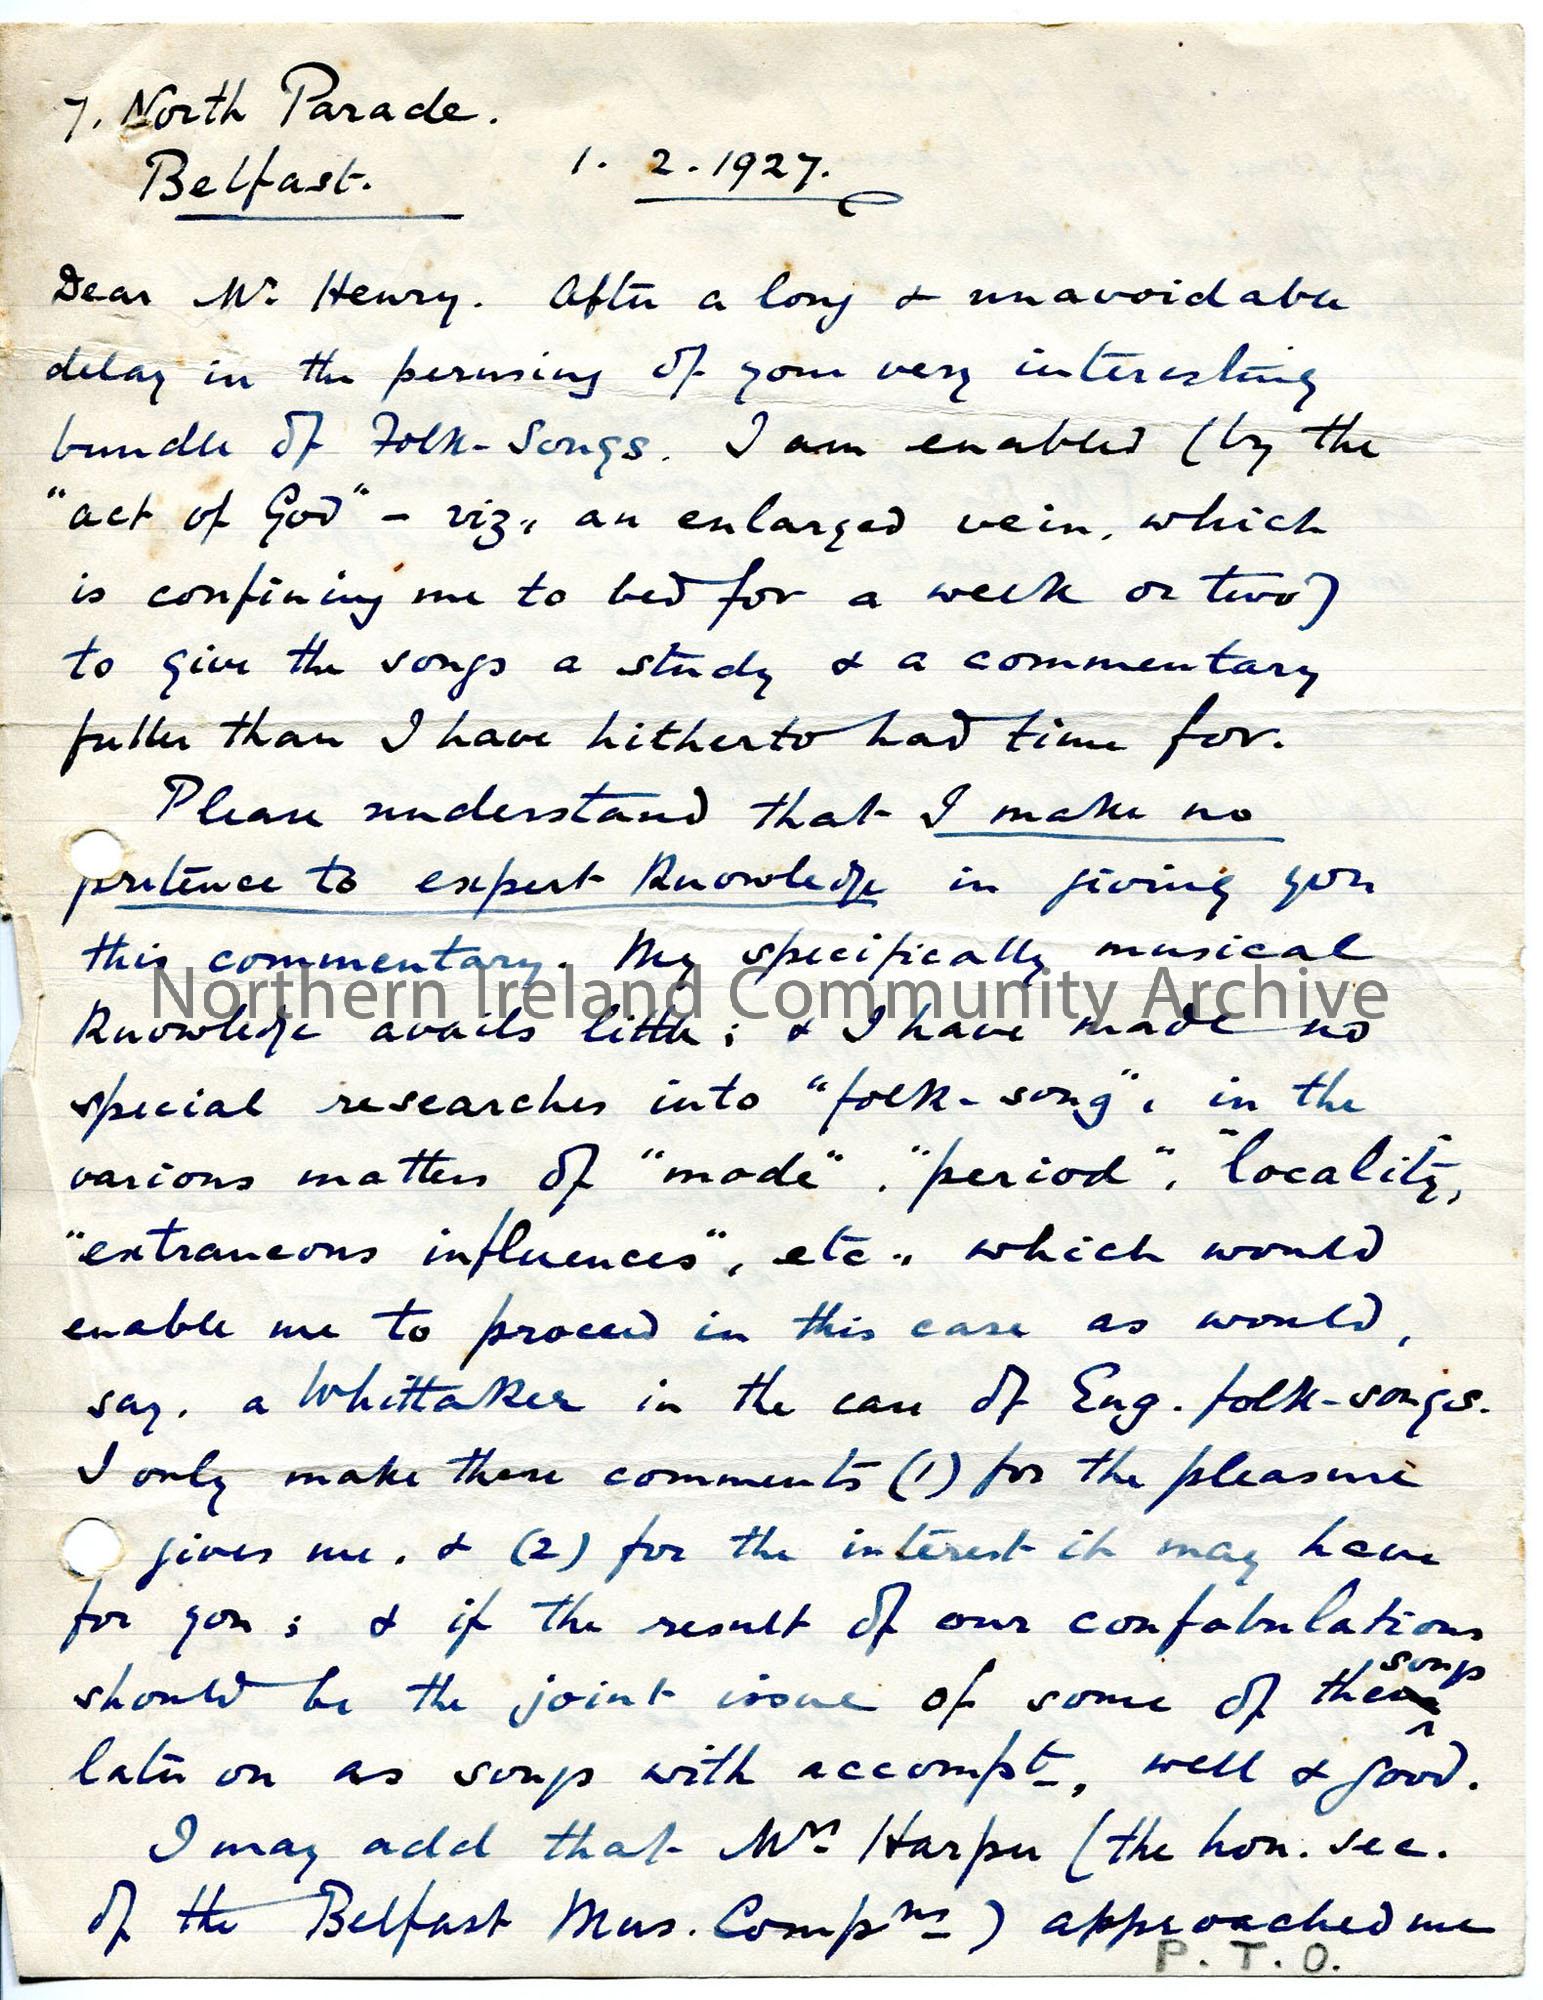 7. North Parade.
Belfast. 1. 2. 1927.
Dear Mr. Henry. After a long & unavoidable
delay in the perusing of your very interesting
bundle of Folk-Songs. I am enabled (by the
"act of God" – viz., an enlarged vein, which
is confining me to bed for a week or two)
to give the songs a study & a commentary
fuller than I have hitherto had time for.
Please understand that I make no
pretence to expert knowledge in giving you
this commentary. My specifically musical
Northern Ireland Community Archive
knowledge avails little; & I have made no
special researches into "folk-song", in the
various matters of "mode", "period", "locality",
"extraneous influences", etc., which would
enable me to proceed in this case as would,
say, a Whittaker in the case of Eng. folk-songs.
I only make these comments (1) for the pleasure
gives me, & (2) for the interest it may have
for you; & if the result of our confabulations
should be the joint issue of some of the songs
later on as songs with accompt., well & good.
I may add that Mrs. Harper (the hon. sec.
of the Belfast Mus. Compns) approached me
P.T.O.